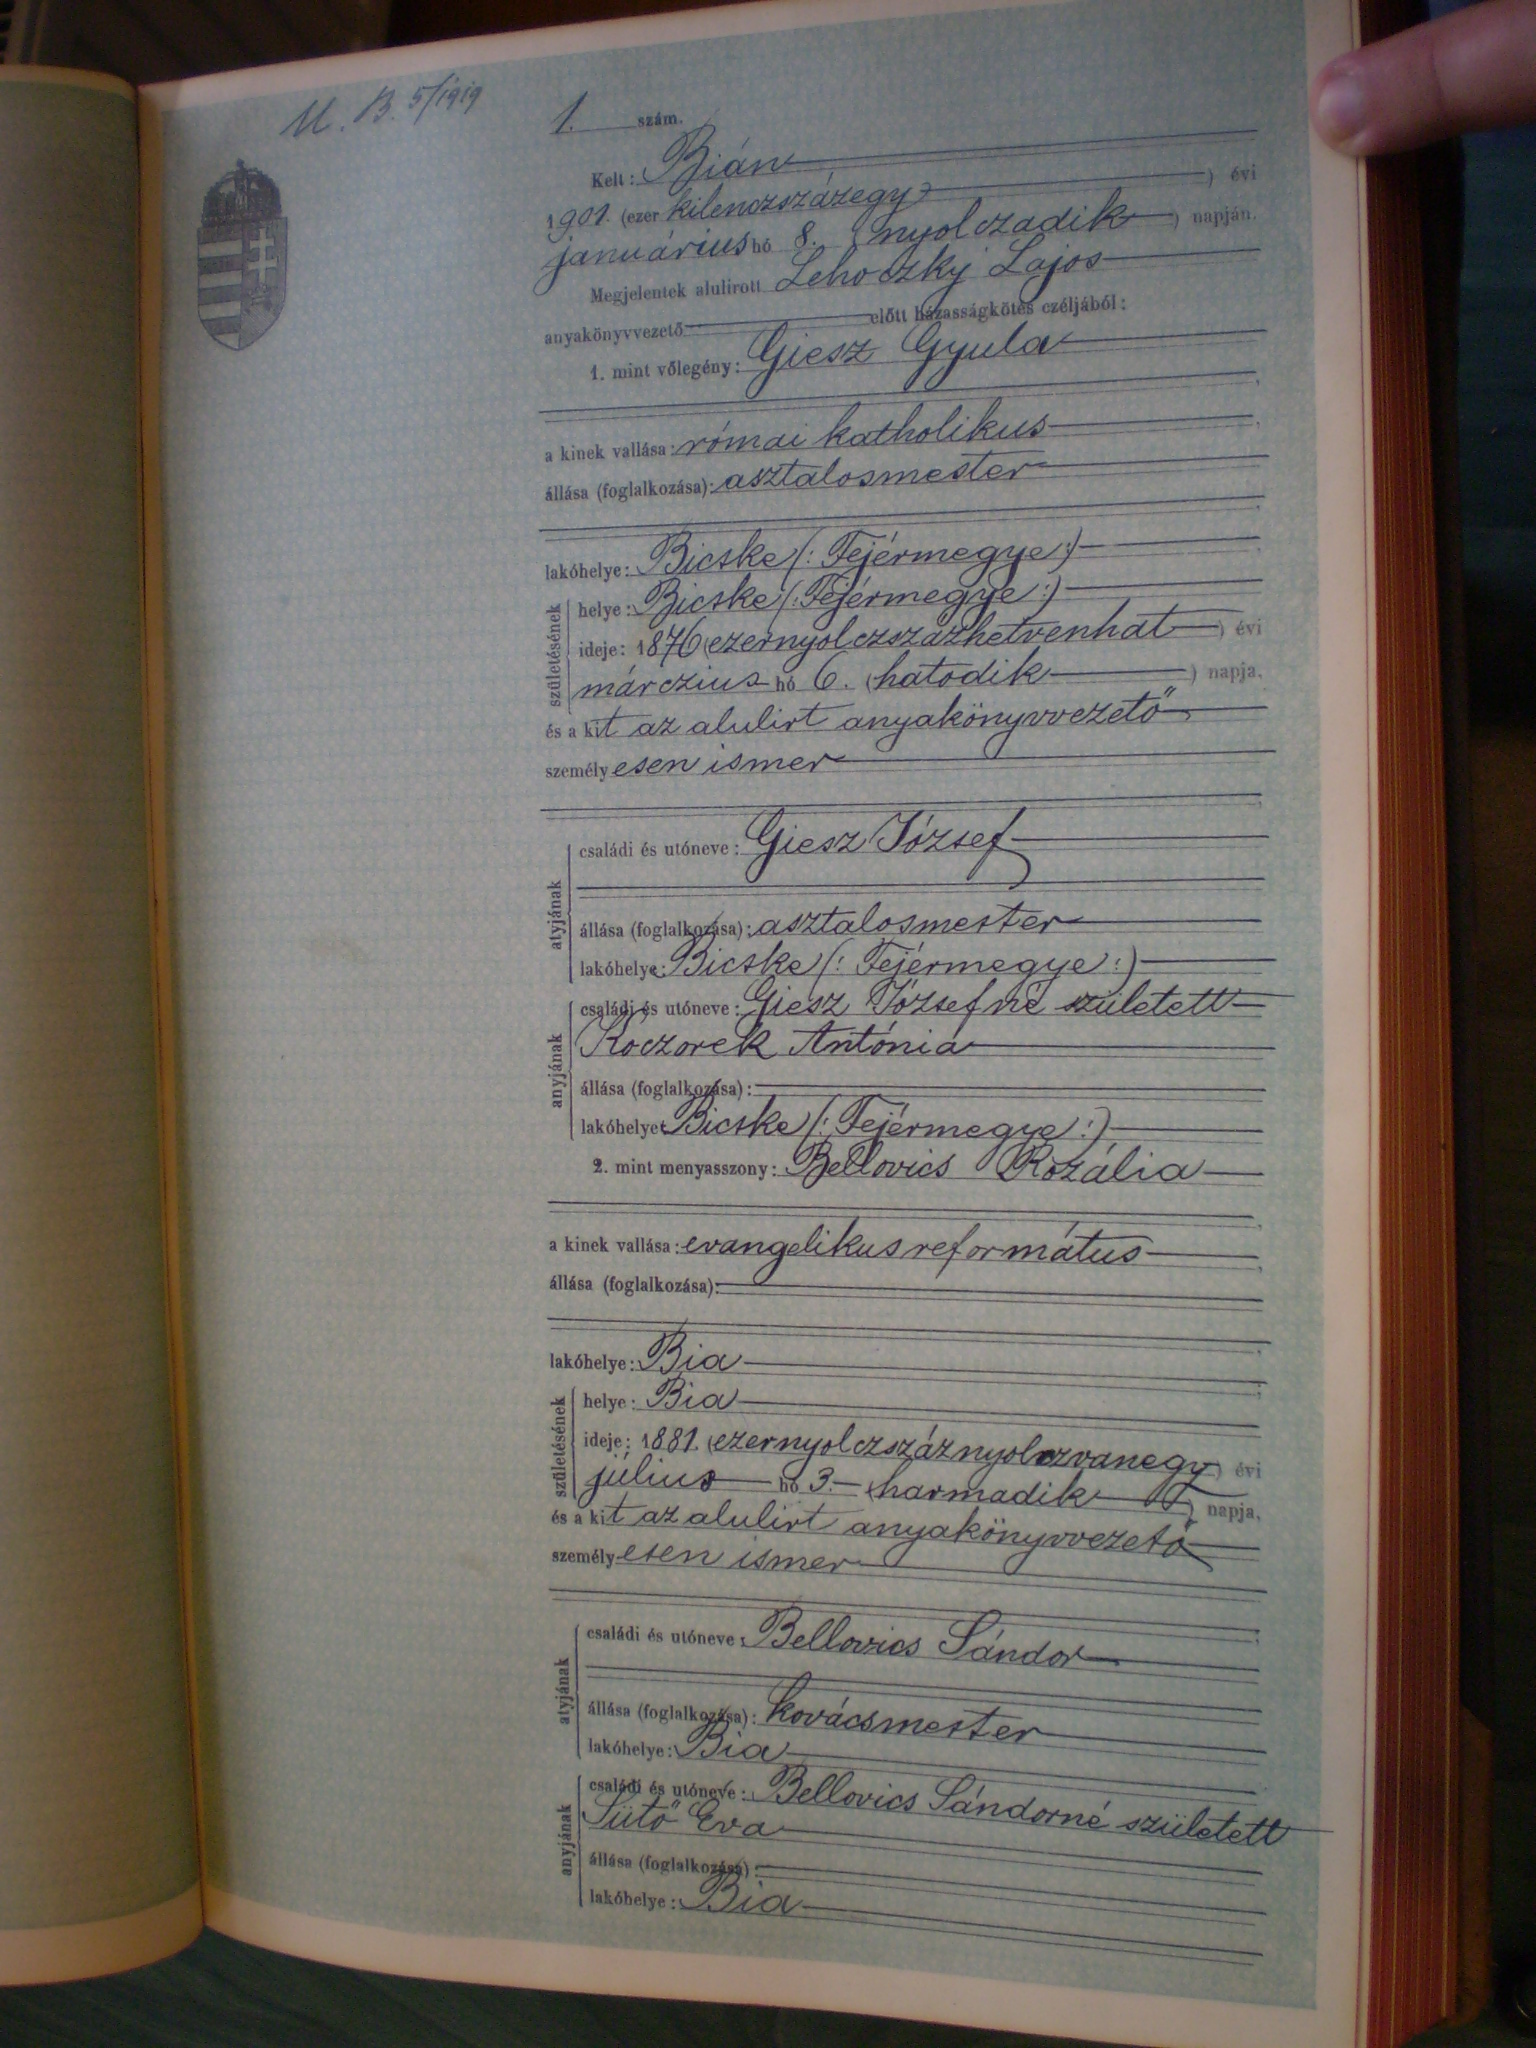 M. B. 5/1919
1. szám.
Kelt: Bián
1901. (ezer kilenczszázegy) évi
januárius hó 8. (nyolczadik) napján.
Megjelentek alulirott Lehoczky Lajos
anyakönyvvezető előtt házasságkötés czéljából:
1. mint vőlegény: Giesz Gyula
a kinek vallása: római katholikus
állása (foglalkozása): asztalosmester
lakóhelye: Bicske (: Fejérmegye :)
születésének
helye: Bicske (: Fejérmegye :)
ideje: 1876 (ezernyolczszázhetvenhat) évi
márczius hó 6. (hatodik) napja,
és a kit az alulirt anyakönyvvezető
személyesen ismer
atyjának
családi és utóneve: Giesz József
állása (foglalkozása): asztalosmester
lakóhelye: Bicske (: Fejérmegye :)
anyjának
családi és utóneve: Giesz Józsefné született
Koczorek Antónia
állása (foglalkozása):
lakóhelye: Bicske (: Fejérmegye :)
2. mint menyasszony: Bellovics Rozália
a kinek vallása: evangelikus református
állása (foglalkozása):
lakóhelye: Bia
születésének
helye: Bia
ideje: 1881. (ezernyolczszáznyolczvanegy) évi
július hó 3. (harmadik) napja,
és a kit az alulirt anyakönyvvezető
személyesen ismer
atyjának
családi és utóneve: Bellovics Sándor
állása (foglalkozása): kovácsmester
lakóhelye: Bia
anyjának
családi és utóneve: Bellovics Sándorné született
Sütő Eva
állása (foglalkozása):
lakóhelye: Bia